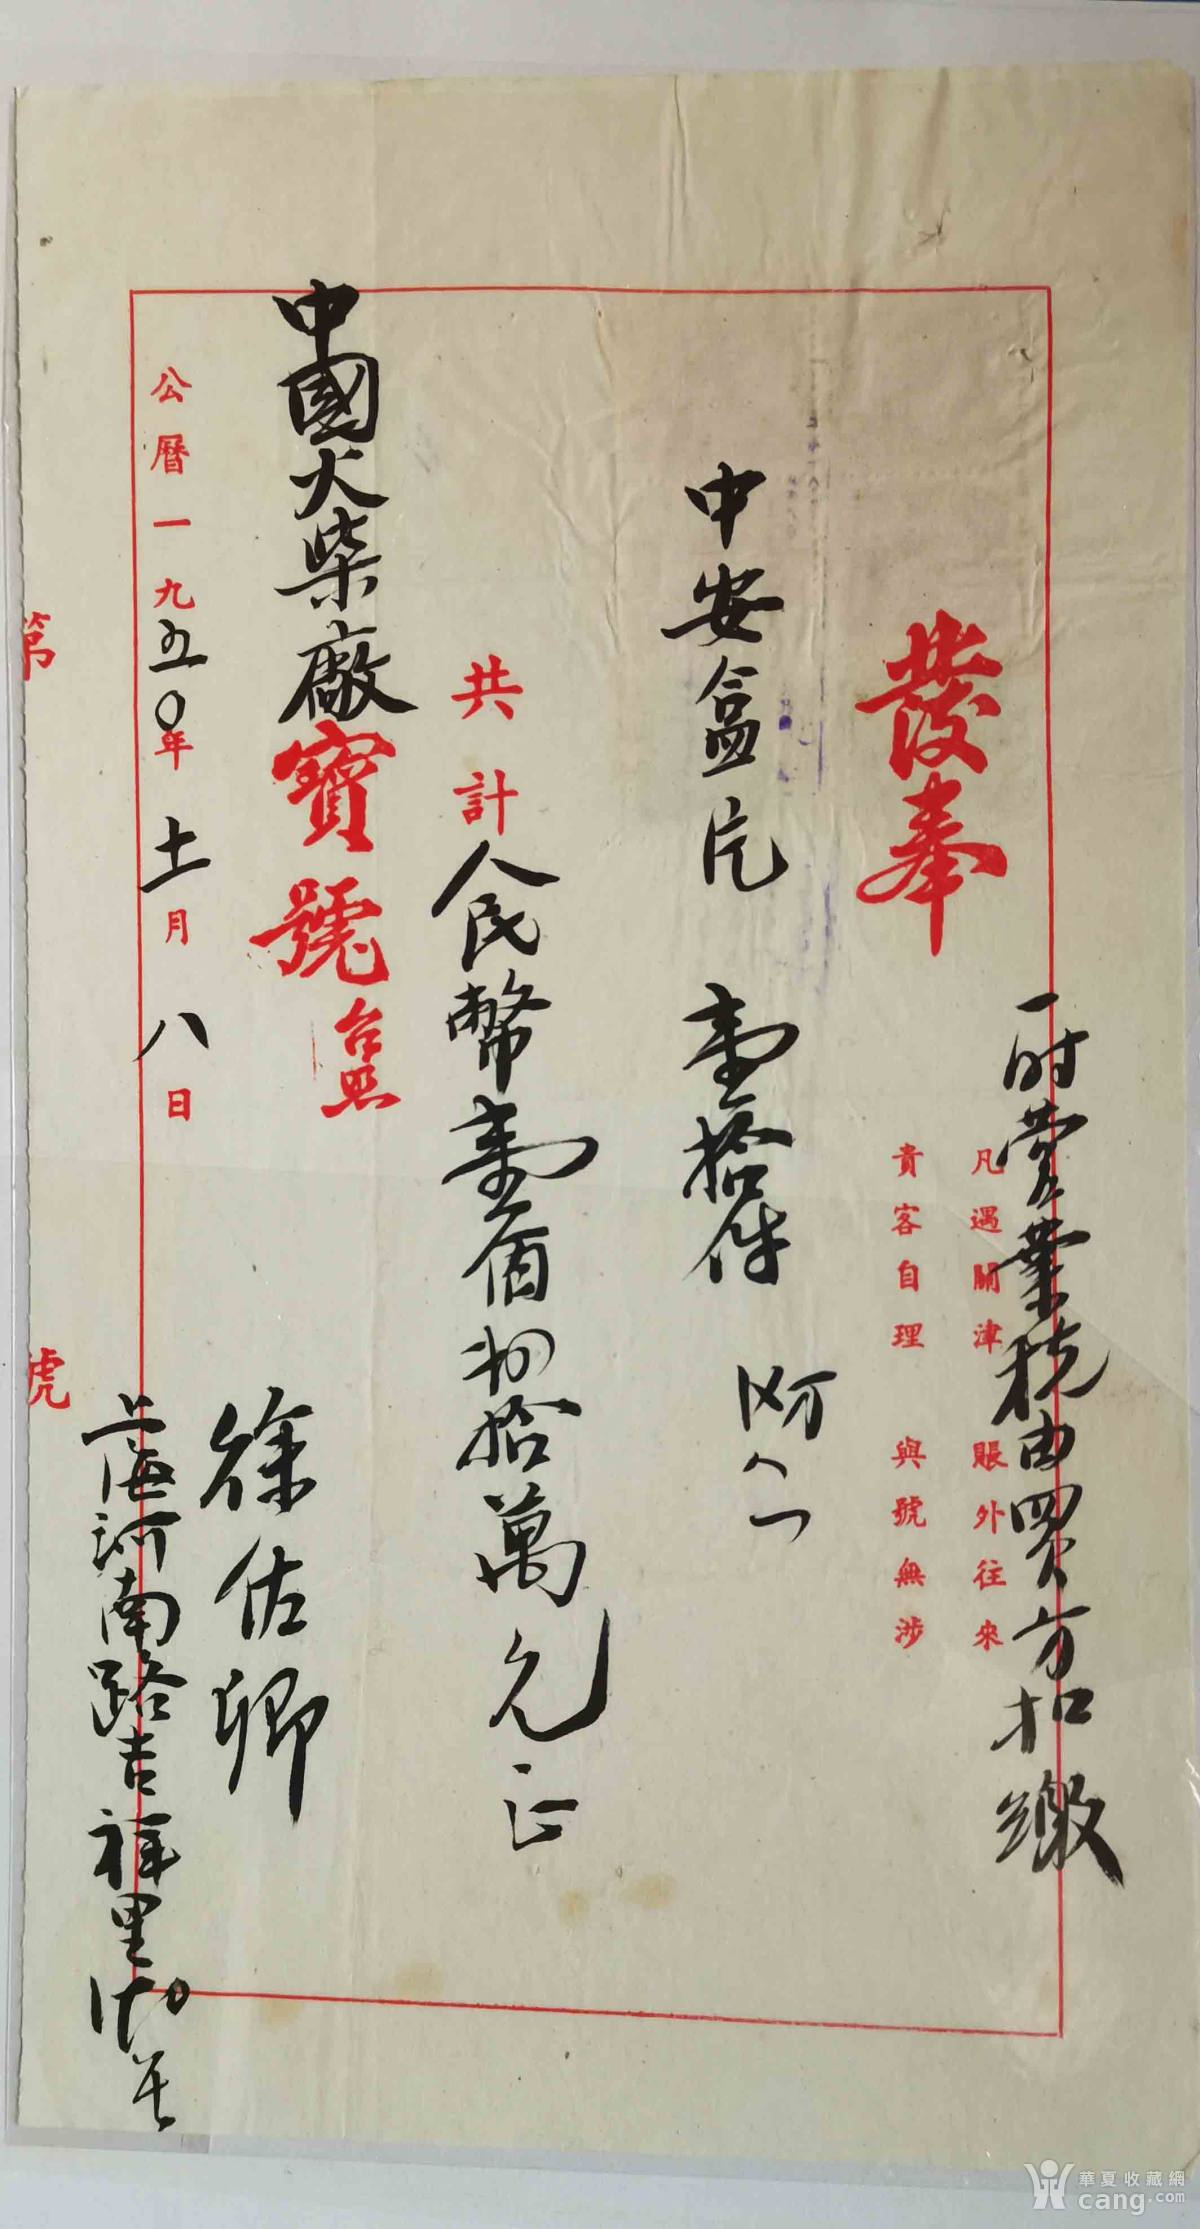 一时营業税由買方扣繳
凡遇關津賬外往來
貴客自理 與號無涉
發奉
中安盒片 壹拾件
共計人民幣壹佰
拾萬元正
中國火柴廠寶號台照
徐佐卿
公曆一九五〇年十一月八日
上海河南路吉祥里
第
號
華夏收藏網
cang.com